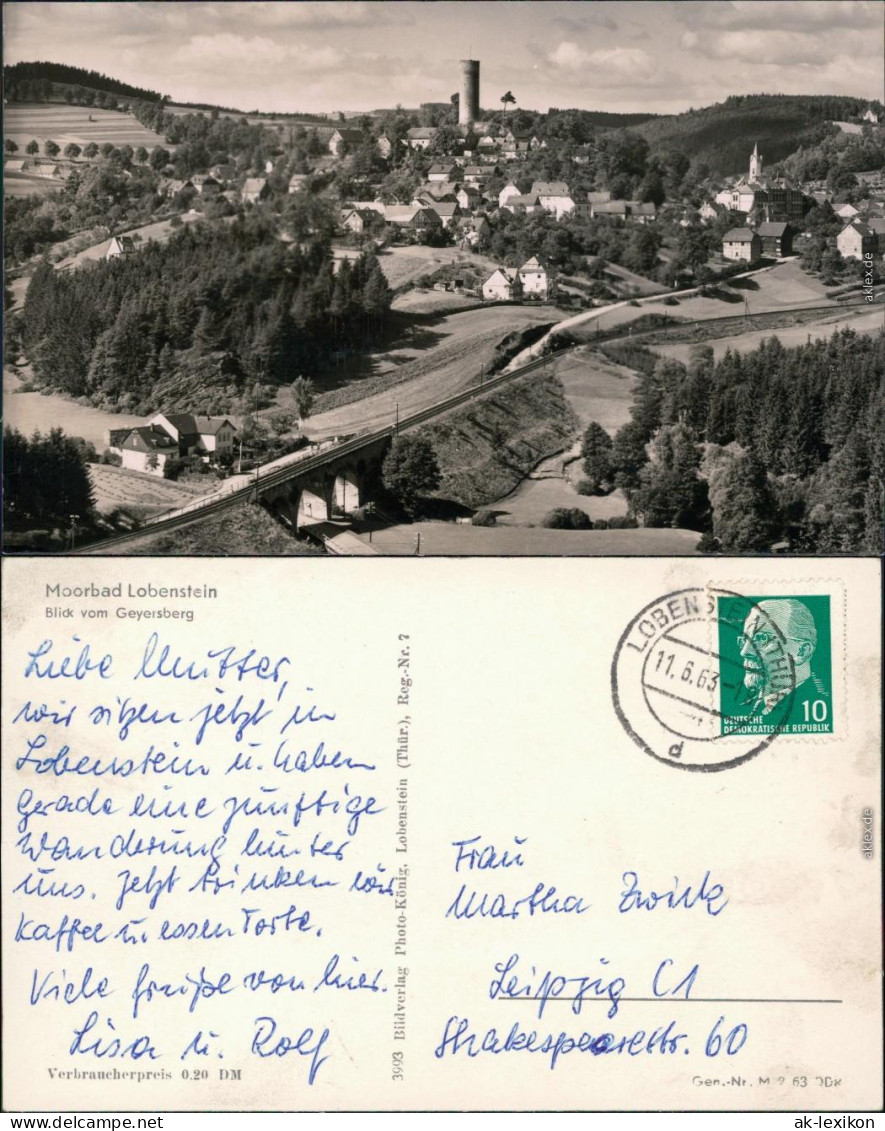 aklex.de
Moorbad Lobenstein
Blick vom Geyersberg
Liebe Mutter,
wir sitzen jetzt in
Lobenstein u. haben
gerade eine zünftige
Wanderung hinter
uns. Jetzt trinken wir
Kaffee u. essen Torte.
Viele Grüße von hier.
Lisa u. Rolf
Verbraucherpreis 0.20 DM
3993 Bildverlag Photo-König, Lobenstein (Thür.), Reg.-Nr. 7
LOBENSTEIN (THÜR)
11.6.63
d
10
DEUTSCHE
DEMOKRATISCHE REPUBLIK
aklex.de
Frau
Martha Zwick
Leipzig C1
Shakespearestr. 60
Gen.-Nr. M 2 63 DDR
ak-lexikon